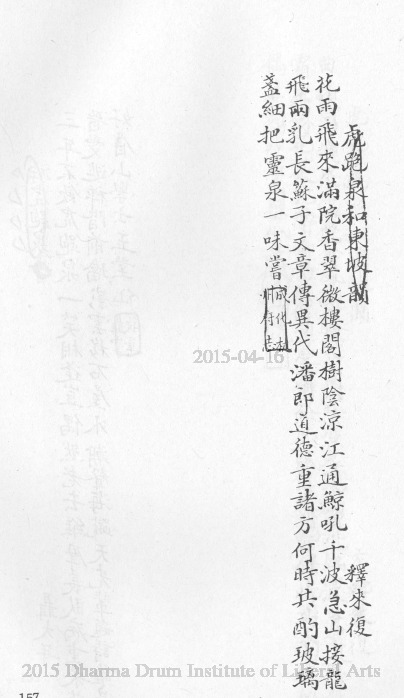 虎跑泉和東坡韻 釋來復
花雨飛來滿院香翠微樓閣樹陰涼江通鯨吼千波急山接龍
飛兩乳長蘇子文章傳異代潘郎道德重諸方何時共酌玻璃
盞細把靈泉一味嘗 成化杭州府志
2015-04-16
157
2015 Dharma Drum Institute of Liberal Arts